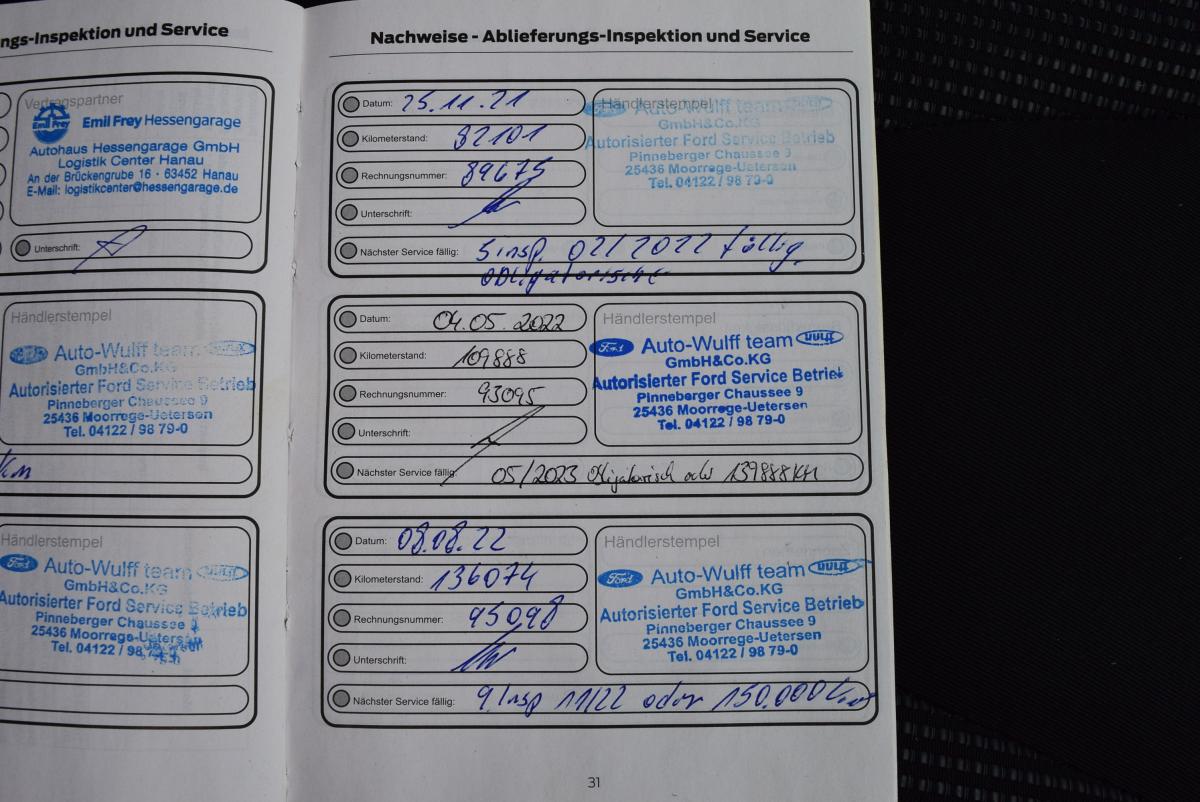 ngs-Inspektion und Service
Vertragspartner
Emil Frey
Emil Frey Hessengarage
Autohaus Hessengarage GmbH
Logistik Center Hanau
An der Brückengrube 16 · 63452 Hanau
E-Mail: logistikcenter@hessengarage.de
Unterschrift:
Händlerstempel
Auto-Wulff team
GmbH&Co.KG
Autorisierter Ford Service Betrieb
Pinneberger Chaussee 9
25436 Moorrege-Uetersen
Tel. 04122 / 98 79-0
km
Händlerstempel
Ford Auto-Wulff team WULFF
GmbH&Co.KG
Autorisierter Ford Service Betrieb
Pinneberger Chaussee
25436 Moorrege-Uetersen
Tel. 04122 / 98
Nachweise - Ablieferungs-Inspektion und Service
Datum: 25.11.21
Kilometerstand: 82101
Rechnungsnummer: 89675
Unterschrift:
Nächster Service fällig: Sinsp. 02/2022 fällig
obligatorische
Händlerstempel
Auto-Wulff team
GmbH&Co.KG
Autorisierter Ford Service Betrieb
Pinneberger Chaussee 9
25436 Moorrege-Uetersen
Tel. 04122 / 98 79-0
Datum: 04.05.2022
Kilometerstand: 109888
Rechnungsnummer: 93095
Unterschrift:
Nächster Service fällig: 05/2023 Obligatorisch oder 139888KM
Händlerstempel
Ford Auto-Wulff team WULFF
GmbH&Co.KG
Autorisierter Ford Service Betrieb
Pinneberger Chaussee 9
25436 Moorrege-Uetersen
Tel. 04122 / 98 79-0
Datum: 08.08.22
Kilometerstand: 136074
Rechnungsnummer: 95098
Unterschrift:
Nächster Service fällig: 9.Insp 11/22 oder 150.000 km
Händlerstempel
Ford Auto-Wulff team WULFF
GmbH&Co.KG
Autorisierter Ford Service Betrieb
Pinneberger Chaussee 9
25436 Moorrege-Uetersen
Tel. 04122 / 98 79-0
31